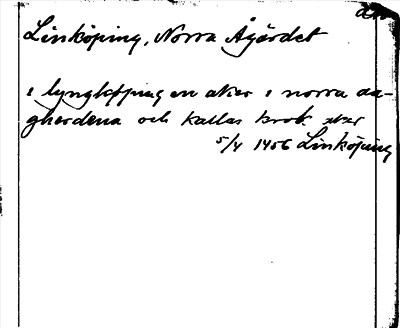 Linköping, Norra Ågärdet
i lyngköping en aker i norra aa-
gherdena och kallas krok aker
5/4 1456 Linköping